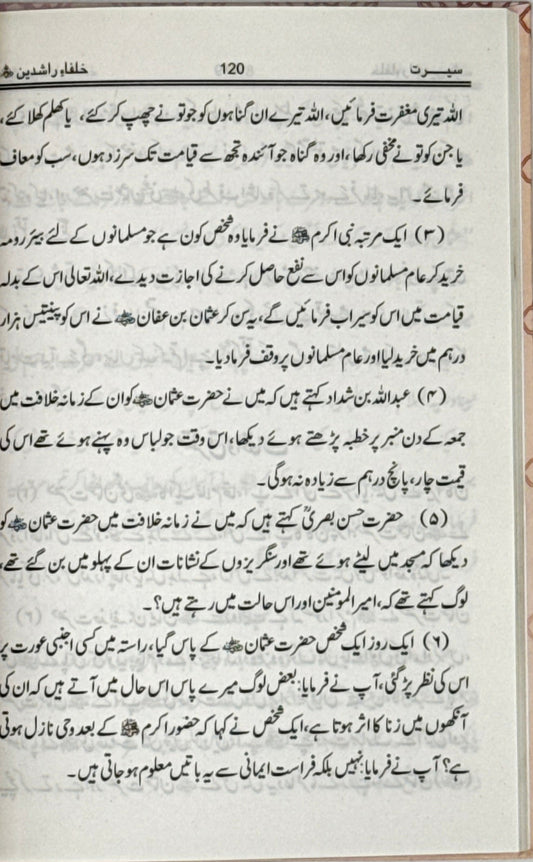 سیرت 120 خلفاءِ راشدین ؓ
اللہ تیری مغفرت فرمائیں، اللہ تیرے ان گناہوں کو جو تو نے چھپ کر کئے، یا کھلم کھلا کئے،
یا جن کو تو نے مخفی رکھا، اور وہ گناہ جو آئندہ تجھ سے قیامت تک سرزد ہوں، سب کو معاف
فرمائے۔
(۳) ایک مرتبہ نبی اکرم ﷺ نے فرمایا وہ شخص کون ہے جو مسلمانوں کے لئے بیئر رومہ
خرید کر عام مسلمانوں کو اس سے نفع حاصل کرنے کی اجازت دیدے، اللہ تعالی اس کے بدلہ
قیامت میں اس کو سیراب فرمائیں گے، یہ سن کر عثمان بن عفان ؓ نے اس کو پینتیس ہزار
درہم میں خرید لیا اور عام مسلمانوں پر وقف فرما دیا۔
(۴) عبداللہ بن شداد کہتے ہیں کہ میں نے حضرت عثمان ؓ کو ان کے زمانہ خلافت میں
جمعہ کے دن منبر پر خطبہ پڑھتے ہوئے دیکھا، اس وقت جو لباس وہ پہنے ہوئے تھے اس کی
قیمت چار، پانچ درہم سے زیادہ نہ ہوگی۔
(۵) حضرت حسن بصریؒ کہتے ہیں کہ میں نے زمانہ خلافت میں حضرت عثمان ؓ کو
دیکھا کہ مسجد میں لیٹے ہوئے تھے اور سنگریزوں کے نشانات ان کے پہلو میں بن گئے تھے،
لوگ کہتے تھے کہ، امیر المومنین اور اس حالت میں رہتے ہیں؟۔
(۶) ایک روز ایک شخص حضرت عثمان ؓ کے پاس گیا، راستہ میں کسی اجنبی عورت پر
اس کی نظر پڑ گئی، آپ نے فرمایا: بعض لوگ میرے پاس اس حال میں آتے ہیں کہ ان کی
آنکھوں میں زنا کا اثر ہوتا ہے، ایک شخص نے کہا کہ حضور اکرم ﷺ کے بعد وحی نازل ہوتی
ہے؟ آپ نے فرمایا: نہیں بلکہ فراست ایمانی سے یہ باتیں معلوم ہو جاتی ہیں۔